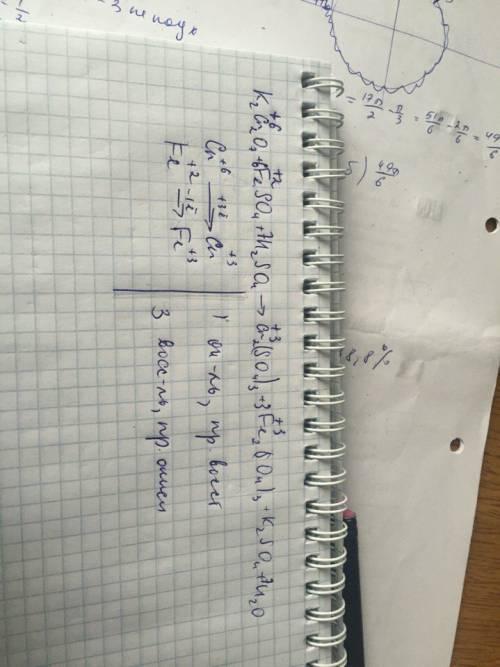 +6 +2 +3 +3
K₂Cr₂O₇+6FeSO₄+7H₂SO₄→Cr₂(SO₄)₃+3Fe₂(SO₄)₃+K₂SO₄+7H₂O
Cr⁺⁶ +3ē → Cr⁺³ | 1 ок-ль, пр. восст
Fe⁺² -1ē → Fe⁺³ | 3 восс-ль, пр. окисл
= 17π/2 - π/3 = 51π/6 - 2π/6 = 49π/6
5) 49π/6
8,8%
-3 не подх